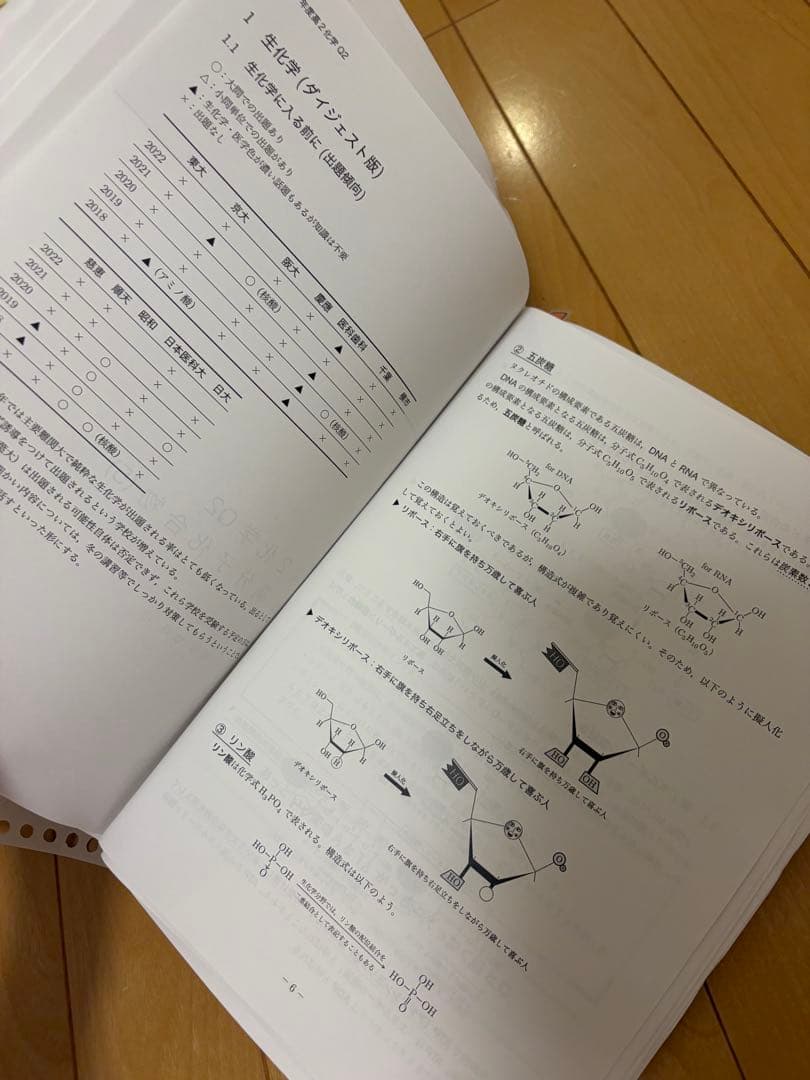 年度高2化学Q2
1 生化学 (ダイジェスト版)
1.1 生化学に入る前に (出題傾向)
○:大問での出題あり
△:小問単位での出題があり
▲:生化学・医学色が濃い話題もあるが知識は不要
×:出題なし
東大 京大 阪大 慶應 医科歯科 千葉
2022
2021
2020
2019
2018
▲(アミノ酸)
○(核酸)
○(核酸)
慈恵 順天 昭和 日本医科大 日大
2022
2021
2020
2019
○(核酸)
年では主要難関大で純粋な生化学が出題される率はとても低くなっている。
誘導をつけて出題されるという学校が増えている。
は出題される可能性自体は否定できず、これら学校を受験する
細かい内容については、冬の講習等でしっかり対策してもらうということに
話すといった形にする。
② 五炭糖
ヌクレオチドの構成要素である五炭糖は、DNAとRNAで異なっている。
DNAの構成要素となる五炭糖は、分子式C₅H₁₀O₄で表されるデオキシリボースである。
の構成要素となる五炭糖は、分子式C₅H₁₀O₅で表されるリボースである。これらは炭素数
るため、五炭糖と呼ばれる。
for DNA
デオキシリボース (C₅H₁₀O₄)
for RNA
リボース (C₅H₁₀O₅)
この構造は覚えておくべきであるが、構造式が複雑であり覚えにくい。そのため、以下のように擬人化
して覚えておくとよい。
▶リボース:右手に旗を持ち万歳して喜ぶ人
リボース
擬人化
右手に旗を持ち万歳して喜ぶ人
▶デオキシリボース:右手に旗を持ち右足立ちをしながら万歳して喜ぶ人
デオキシリボース
擬人化
右手に旗を持ち右足立ちをしながら万歳して喜ぶ人
③ リン酸
リン酸は化学式H₃PO₄で表される。構造式は以下のよう。
生化学分野では、リン酸の配位結合を
二重結合として表記することもある
– 6 –